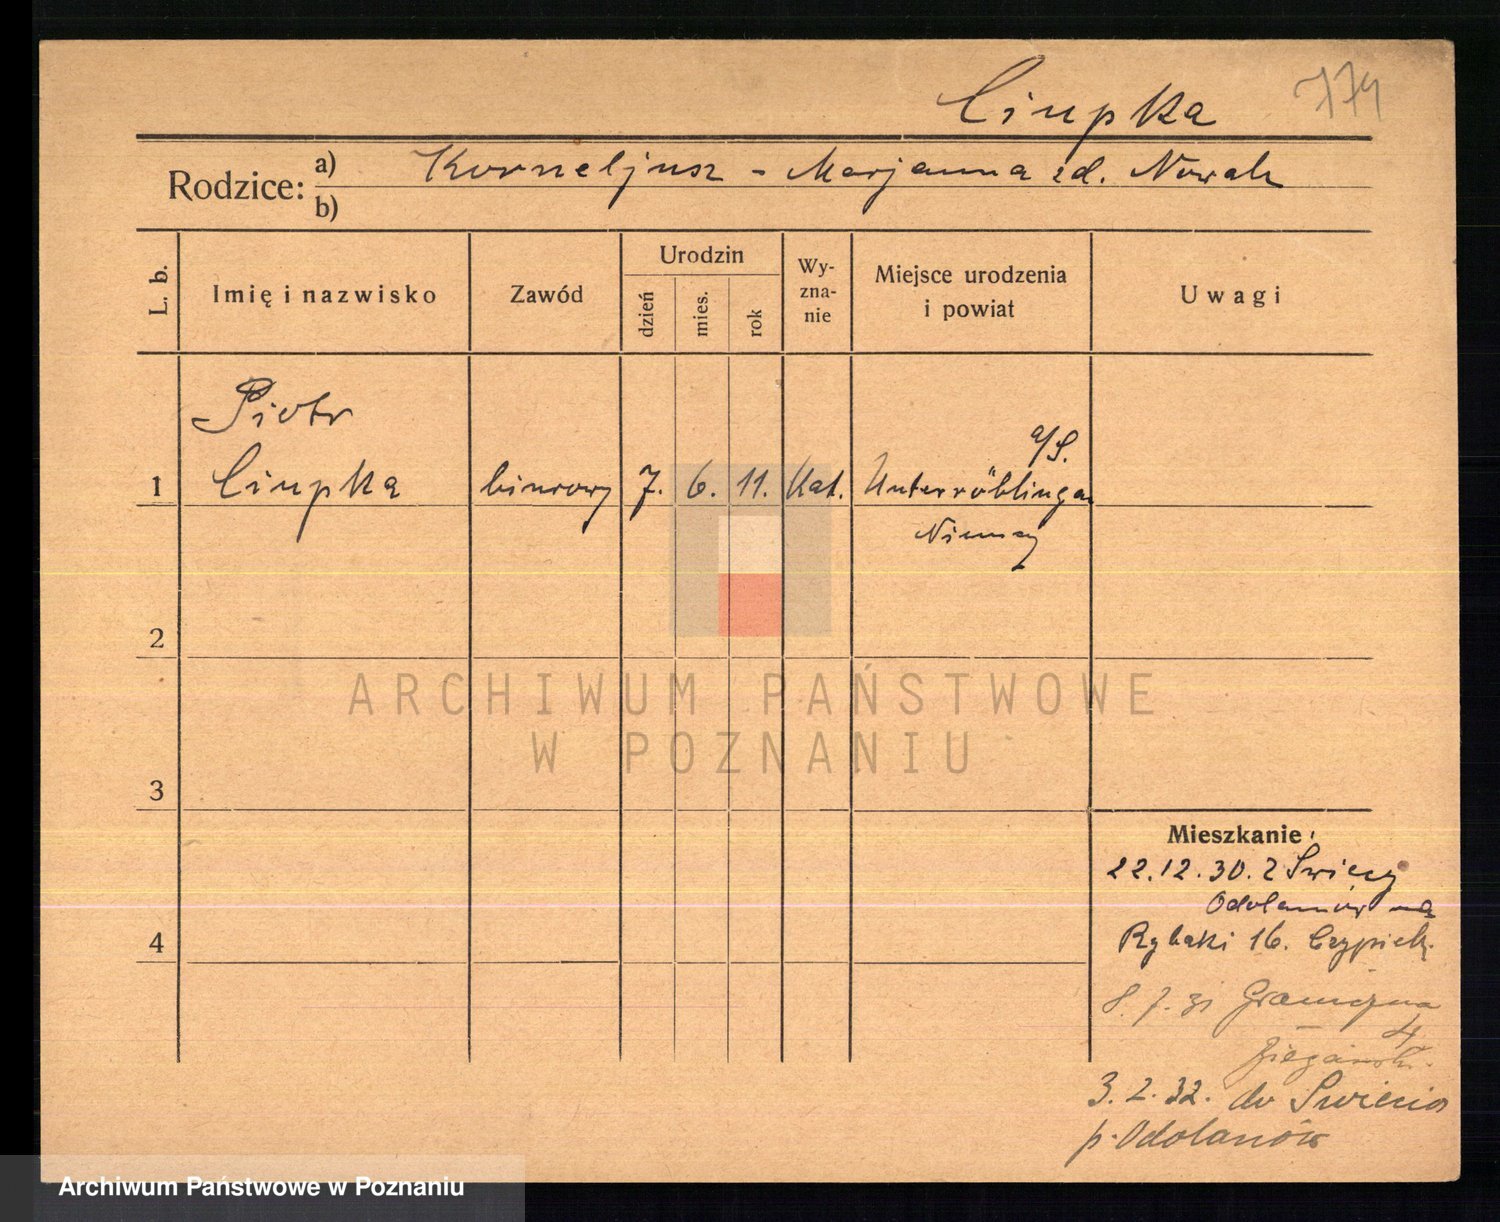 Ciupka 774
Rodzice: a) Korneljusz - Marjanna zd. Nowak
b)
L. b. Imię i nazwisko Zawód Urodzin dzień mies. rok Wy-zna-nie Miejsce urodzenia i powiat Uwagi
Piotr
a/S.
1 Ciupka biurowy 7. 6. 11. Kat. Unterröblingen
Niemcy
2
ARCHIWUM PAŃSTWOWE
W POZNANIU
3
Mieszkanie
22.12.30. z Świecy
Odolanów na
Rybaki 16.
4
8. 7. 31 Graniczna
4
3. 2. 32. do
p. Odolanów
Archiwum Państwowe w Poznaniu